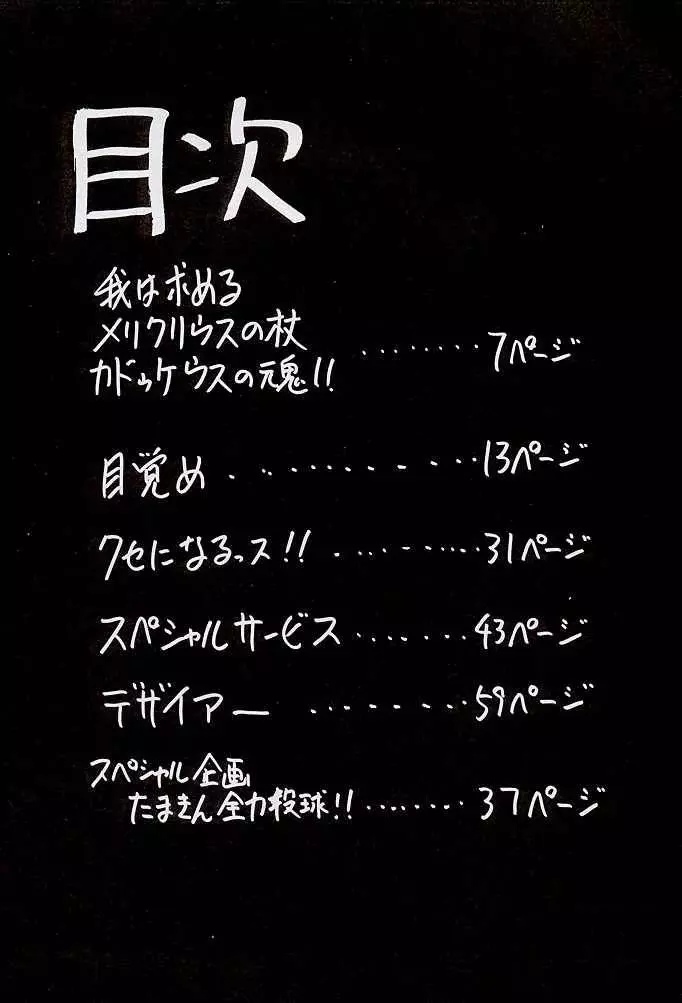 目次
我は求める
メリクリウスの杖
カドゥケウスの魂!! ........ 7ページ
目覚め ........... 13ページ
クセになるっス!! .......... 31ページ
スペシャルサービス ....... 43ページ
デザイアー ........ 59ページ
スペシャル企画
たまきん全力投球!! ........ 37ページ